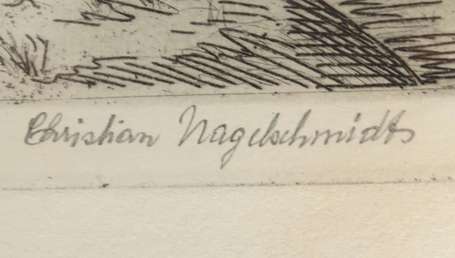 Christian Nagelschmidts